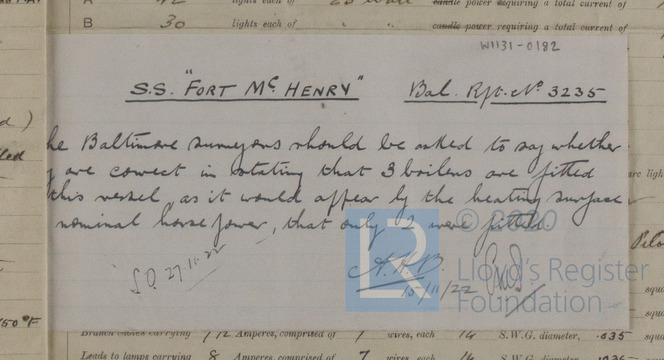 A 42 lights each of candle power requiring a total current of
B 30 lights each of " " candle power requiring a total current of
W1131-0182
S.S. "FORT McHENRY" Bal. Rpt. No 3235
he Baltimore surveyors should be asked to say whether
y are correct in stating that 3 boilers are fitted
this vessel as it would appear by the heating surface
nominal horse power, that only 2 were fitted.
© 2020
Lloyd's Register
Foundation
LR
S.O. 27.11.22
A.H.B.
15/11/22
d)
50°F
are ligh
squa
squa
Branch cables carrying 112 Amperes, comprised of 7 wires, each 14 S.W.G. diameter, .035 squa
Leads to lamps carrying 8 Amperes, comprised of 7 wires, each 14 S.W.G. diameter,